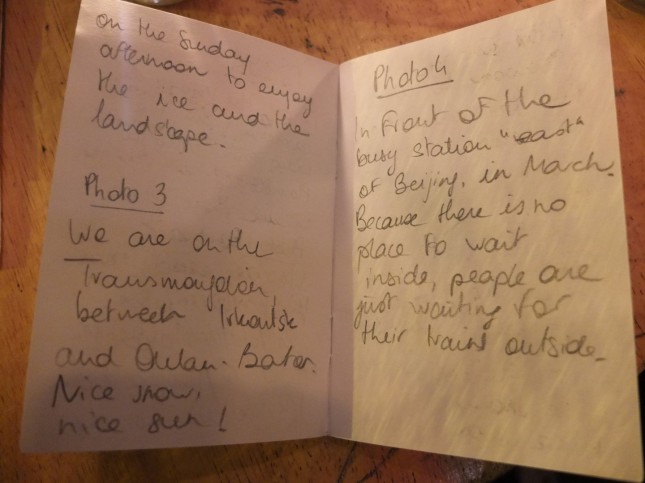 on the Sunday
afternoon to enjoy
the ice and the
landscape.
Photo 3
We are on the
Transmongolian,
between Irkoutsk
and Oulan-Bator.
Nice snow,
nice sun!
Photo 4
In Front of the
busy station "east"
of Beijing, in March.
Because there is no
place to wait
inside, people are
just waiting for
their trains outside.